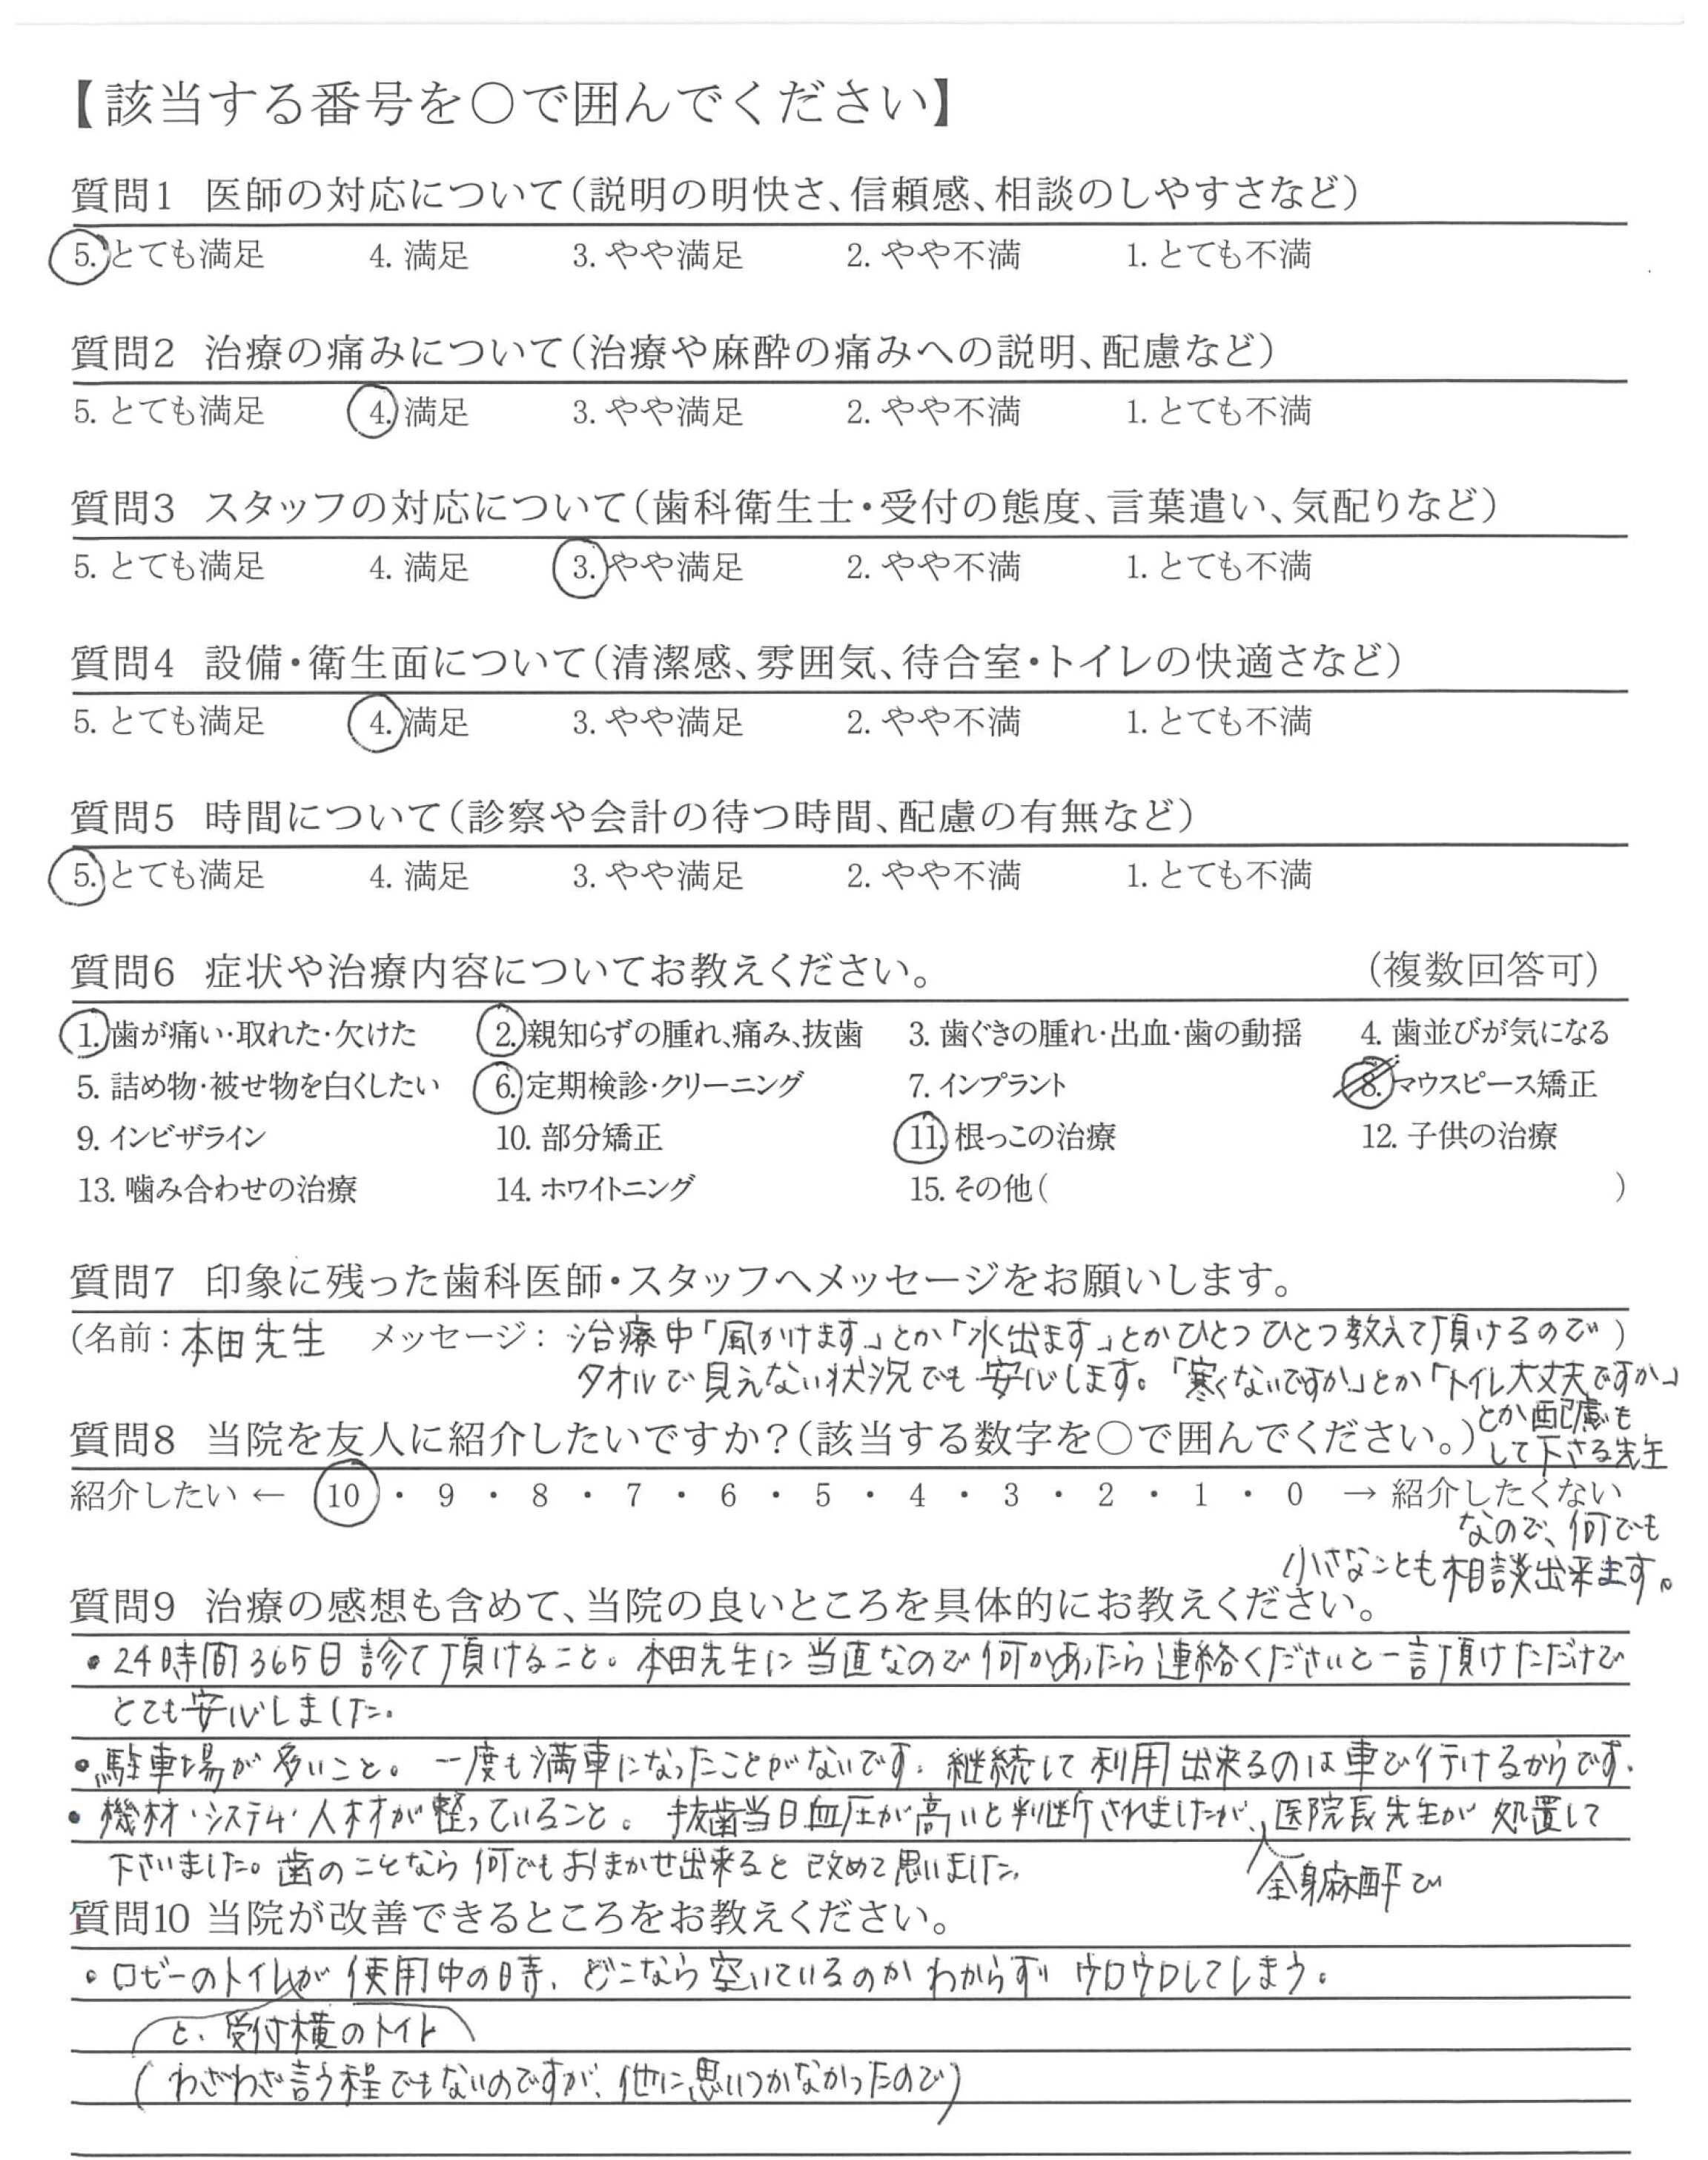 【該当する番号を○で囲んでください】
質問1 医師の対応について(説明の明快さ、信頼感、相談のしやすさなど)
5. とても満足 4. 満足 3. やや満足 2. やや不満 1. とても不満
質問2 治療の痛みについて(治療や麻酔の痛みへの説明、配慮など)
5. とても満足 4. 満足 3. やや満足 2. やや不満 1. とても不満
質問3 スタッフの対応について(歯科衛生士・受付の態度、言葉遣い、気配りなど)
5. とても満足 4. 満足 3. やや満足 2. やや不満 1. とても不満
質問4 設備・衛生面について(清潔感、雰囲気、待合室・トイレの快適さなど)
5. とても満足 4. 満足 3. やや満足 2. やや不満 1. とても不満
質問5 時間について(診察や会計の待つ時間、配慮の有無など)
5. とても満足 4. 満足 3. やや満足 2. やや不満 1. とても不満
質問6 症状や治療内容についてお教えください。 (複数回答可)
1. 歯が痛い・取れた・欠けた 2. 親知らずの腫れ、痛み、抜歯 3. 歯ぐきの腫れ・出血・歯の動揺 4. 歯並びが気になる
5. 詰め物・被せ物を白くしたい 6. 定期検診・クリーニング 7. インプラント 8. マウスピース矯正
9. インビザライン 10. 部分矯正 11. 根っこの治療 12. 子供の治療
13. 噛み合わせの治療 14. ホワイトニング 15. その他( )
質問7 印象に残った歯科医師・スタッフへメッセージをお願いします。
(名前:本田先生 メッセージ:治療中「風かけます」とか「水出ます」とかひとつひとつ教えて頂けるので)
タオルで見えない状況でも安心します。「寒くないですか」とか「トイレ大丈夫ですか」
とか配慮も
して下さる先生
なので、何でも
小さなことも相談出来ます。
質問8 当院を友人に紹介したいですか?(該当する数字を○で囲んでください。)
紹介したい ← 10 ・ 9 ・ 8 ・ 7 ・ 6 ・ 5 ・ 4 ・ 3 ・ 2 ・ 1 ・ 0 → 紹介したくない
質問9 治療の感想も含めて、当院の良いところを具体的にお教えください。
・24時間365日診て頂けること。本田先生に当直なので何かあったら連絡くださいと一言頂けただけで
とても安心しました。
・駐車場が多いこと。一度も満車になったことがないです。継続して利用出来るのは車で行けるからです。
・機材・システム・人材が整っていること。抜歯当日血圧が高いと判断されましたが、医院長先生が処置して
全身麻酔で
下さいました。歯のことなら何でもおまかせ出来ると改めて思いました。
質問10 当院が改善できるところをお教えください。
・ロビーのトイレが使用中の時、どこなら空いているのかわからずウロウロしてしまう。
と、受付横のトイレ
(わざわざ言う程でもないのですが、他に思いつかなかったので)